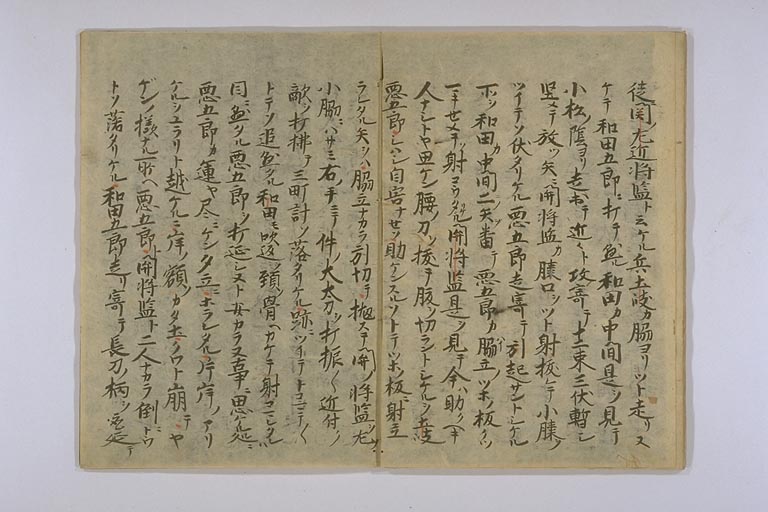 徒関ノ左近将監トミケル兵土岐カ脇ヨリツト走リヌ
ケテ和田五郎ニ打テ蒐ル和田カ中間是ヲ見テ
小松ノ陰ヨリ走出テ近々ト攻寄テ十二束三伏暫シ
堅テ放ツ矢ニ関将監カ膝口ツト射抜テ小膝ヲ
ツイテソ伏タリケル悪五郎走寄テ引起サントシケル
所ヲ和田カ中間二ノ矢番テ悪五郎カ脇立ツホノ板
一キセメテソ射コウタル関将監是ヲ見テ今ハ助クヘキ
人ナシトヤ思ケン腰ノ刀ヲ抜テ腹ヲ切ラントシケルヲ土岐
悪五郎シハシ自害ナセソ助ケンスルソトテツホノ板ニ射立
ラレタル矢ヲハ脇立ナカラ引切テ抛ステ関ノ将監ヲ左ノ
小脇ニハサミ右ノ手ニテ件ノ大太刀ヲ打振々近付ノ
敵ヲ打拂テ三町計ソ落タリケル跡ニツイテトコマテ
トテソ追蒐タル和田モ吹返ノ頚ノ骨ヘカケテ射コミタル
同蒐タル悪五郎ヲ打延シヌト安カラヌ事ニ思ケル処ニ
悪五郎カ運ヤ尽ニケン夕立ニホラレタル片岸ノアリ
ケルヲユラリト越ケルニ岸ノ額ノカタ土クワト崩テヤ
ゲンノ様ナル所ヘ悪五郎ト関将監ト二人ナカラ倒ニドウ
トソ落タリケル和田五郎走リ寄テ長刀ノ柄ヲ